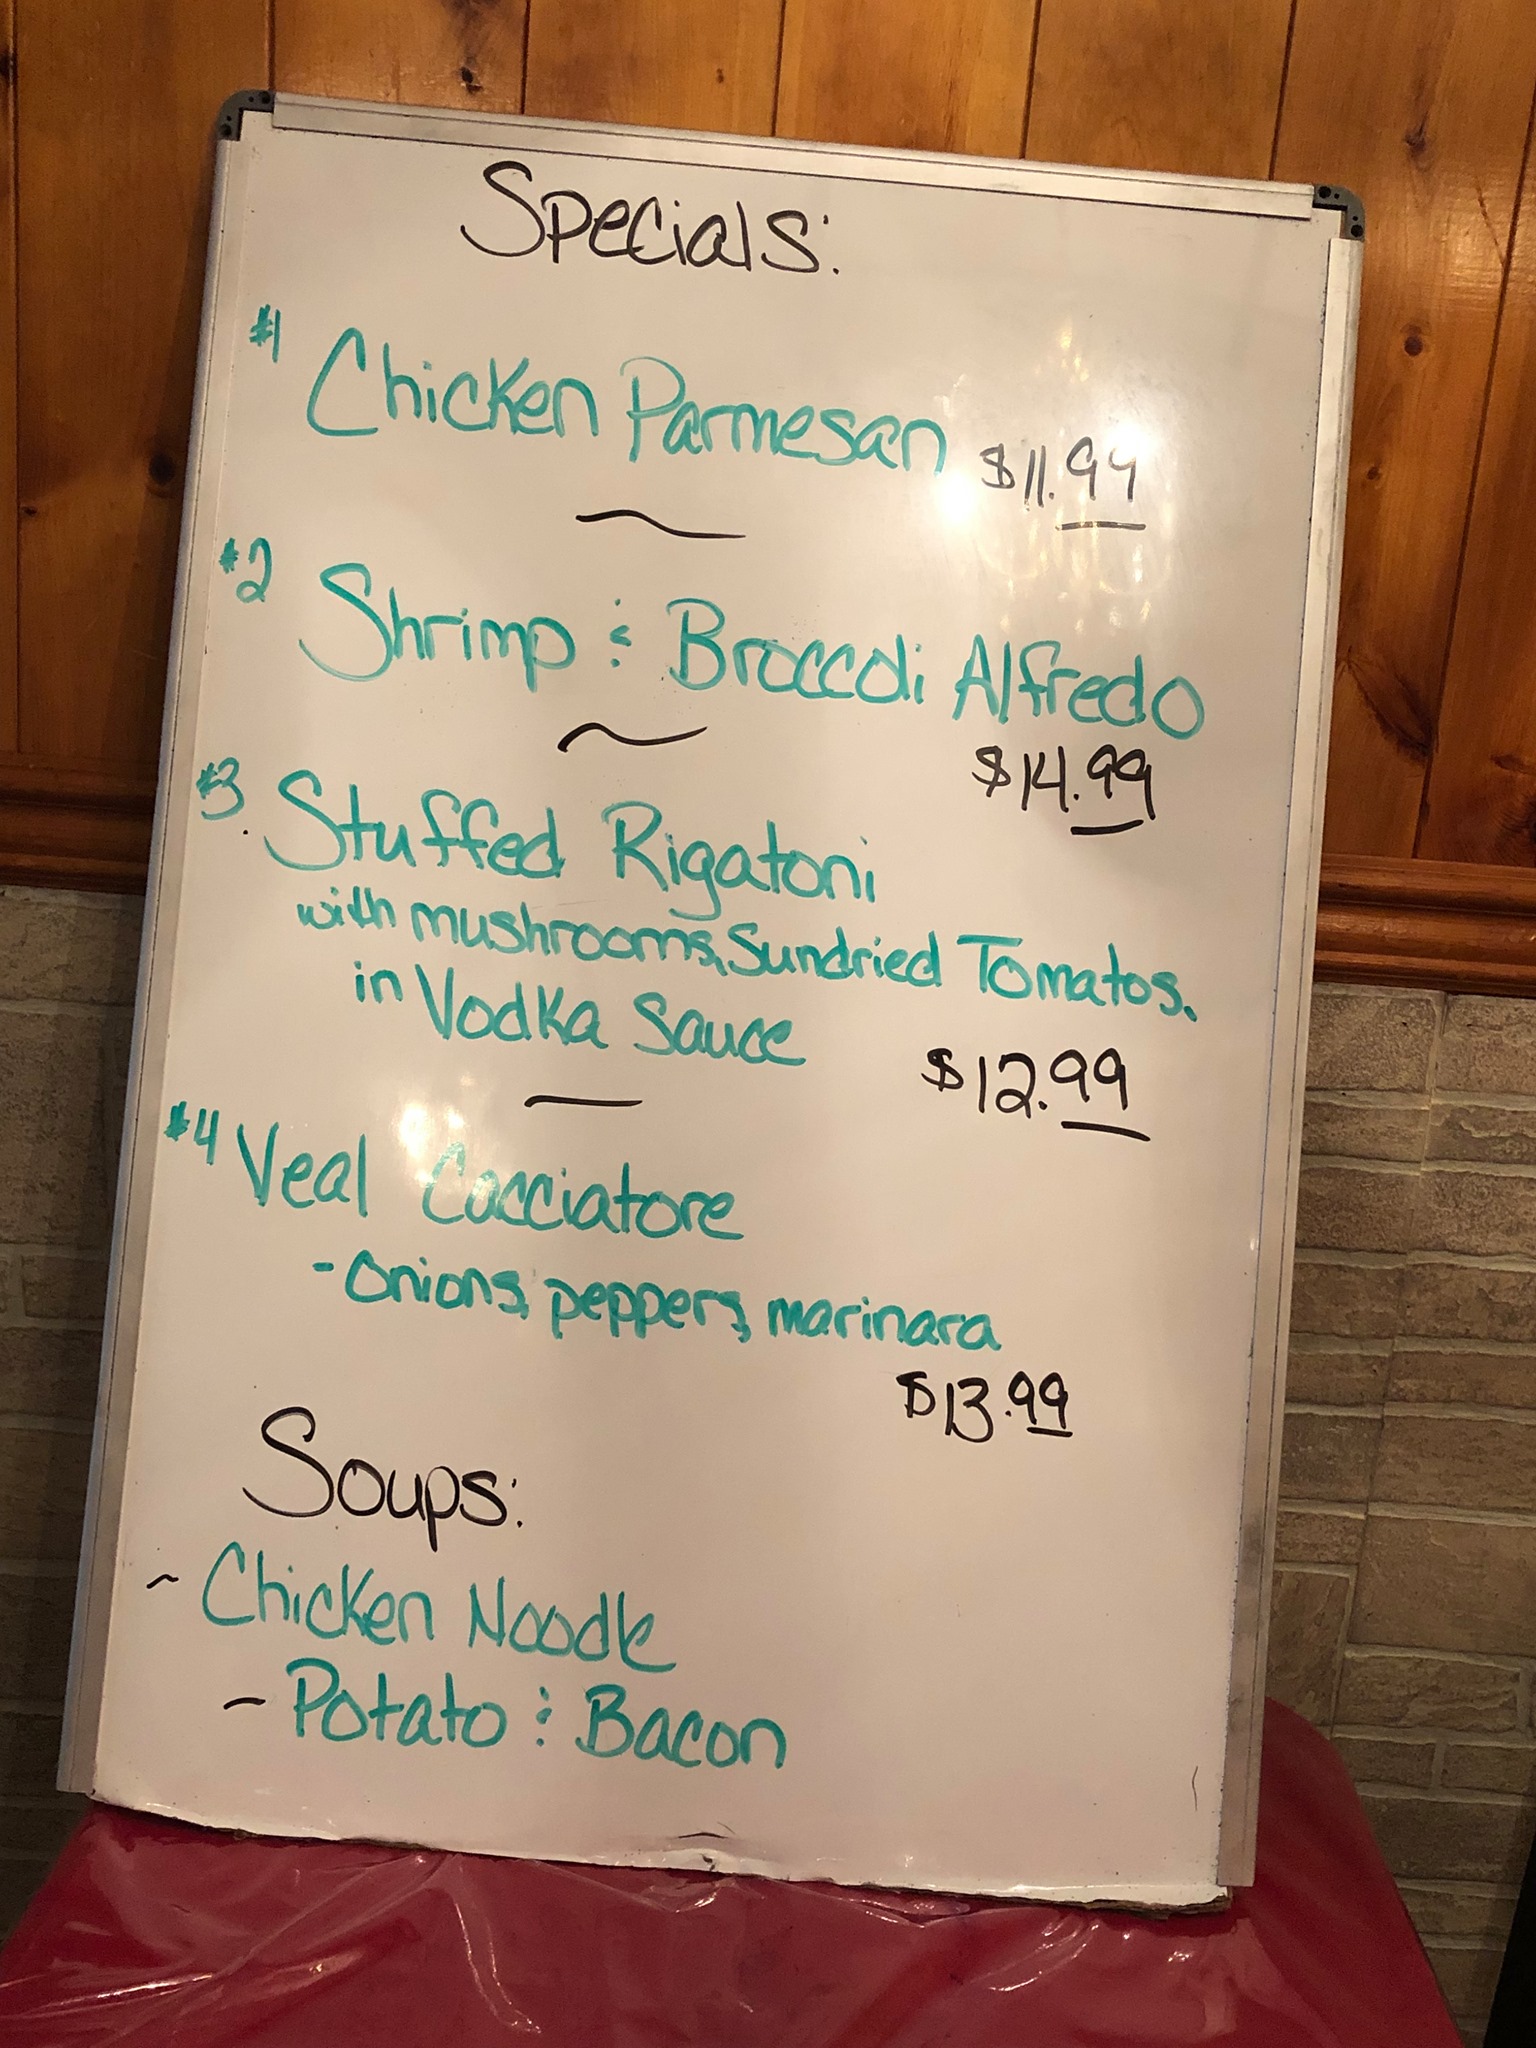 Specials:
#1 Chicken Parmesan $11.99
#2 Shrimp & Broccoli Alfredo
$14.99
#3. Stuffed Rigatoni
with mushrooms, Sundried Tomatos,
in Vodka Sauce $12.99
#4 Veal Cacciatore
- Onions, peppers, marinara
$13.99
Soups:
~ Chicken Noodle
~ Potato & Bacon